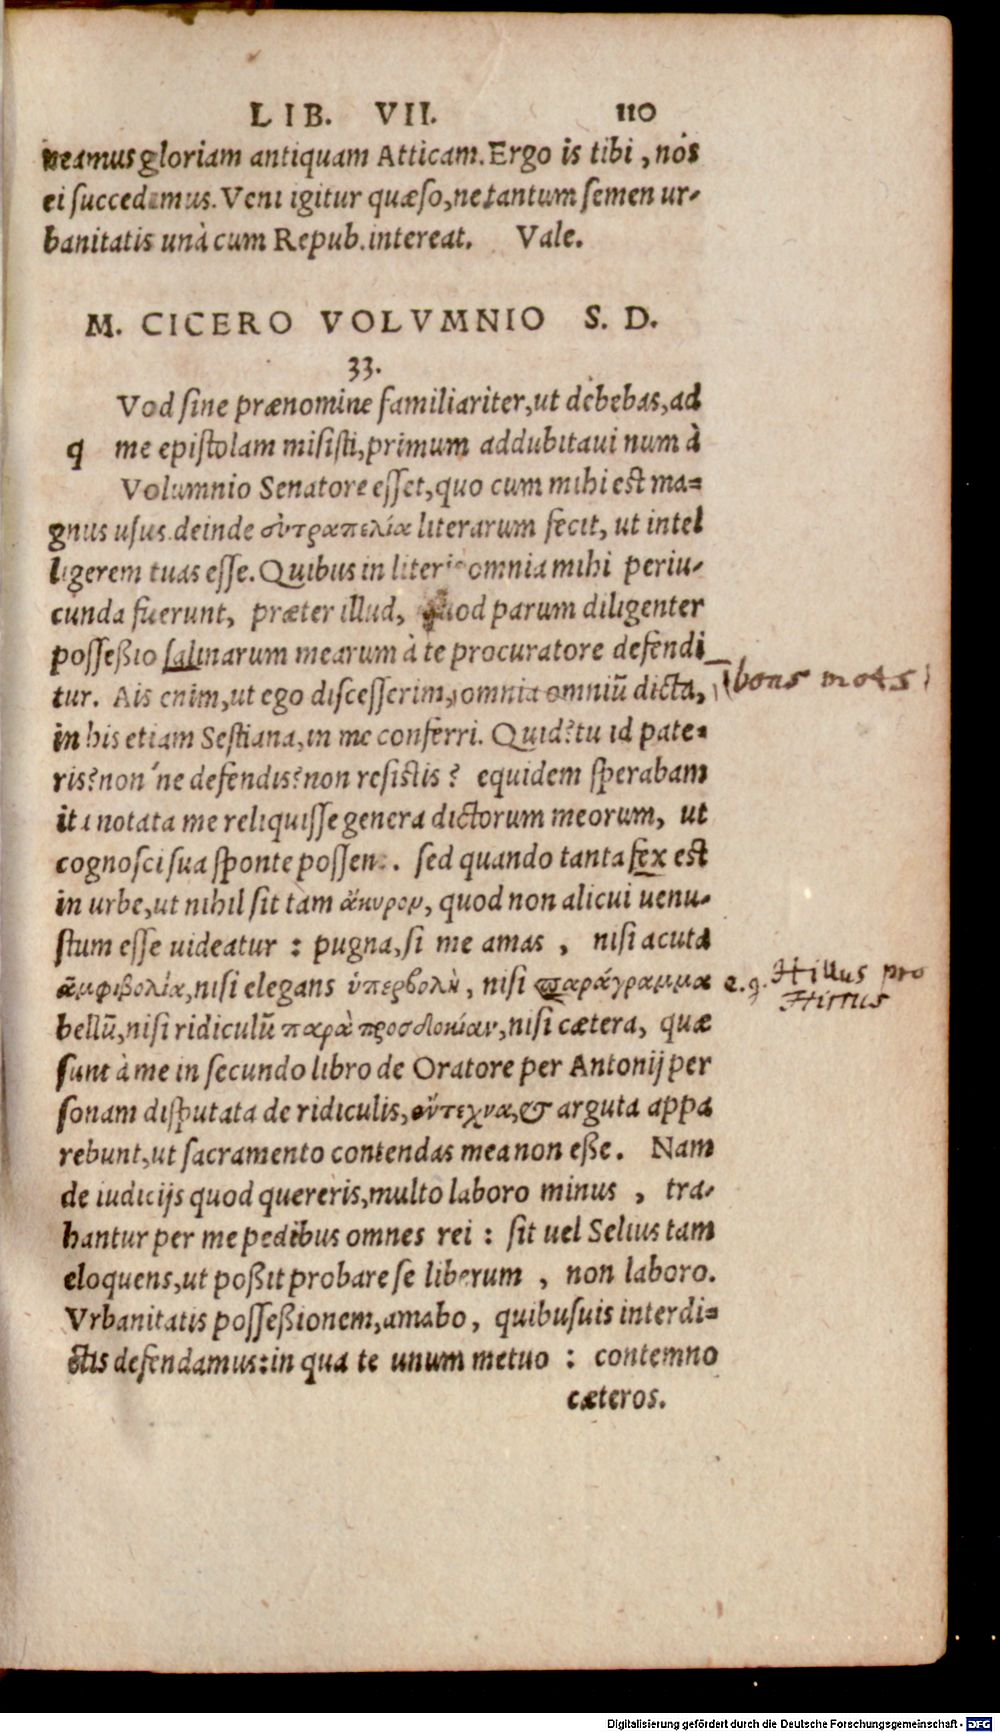 LIB. VII. 110
neamus gloriam antiquam Atticam. Ergo is tibi, nós
ei succedamus. Veni igitur quæso, ne tantum semen ur-
banitatis unà cum Repub. intereat. Vale.
M. CICERO VOLVMNIO S. D.
33.
Vod sine prænomine familiariter, ut debebas, ad
q me epistolam misisti, primum addubitaui num à
Volumnio Senatore esset, quo cum mihi est ma-
gnus usus. deinde εὐτραπελία literarum fecit, ut intel
ligerem tuas esse. Quibus in literis omnia mihi periu-
cunda fuerunt, præter illud, quod parum diligenter
posseßio salinarum mearum à te procuratore defendi
tur. Ais enim, ut ego discesserim, omnia omniũ dicta, (bons mots)
in his etiam Sestiana, in me conferri. Quid? tu id pate-
ris? non'ne defendis? non resistis? equidem sperabam
ita notata me reliquisse genera dictorum meorum, ut
cognosci sua sponte possent. sed quando tanta fex est
in urbe, ut nihil sit tàm ἄκυρον, quod non alicui uenu-
stum esse uideatur : pugna, si me amas , nisi acuta
ἀμφιβολία, nisi elegans ὑπερβολὴ, nisi παράγραμμα e.g. Hillus pro
Hirrus
bellũ, nisi ridiculũ παρὰ προσδοκίαν, nisi cætera, quæ
sunt à me in secundo libro de Oratore per Antonij per
sonam disputata de ridiculis, εὔτεχνα, & arguta appa
rebunt, ut sacramento contendas mea non eße. Nam
de iudicijs quod quereris, multo laboro minus , tra-
hantur per me pedibus omnes rei : sit uel Selius tam
eloquens, ut poßit probare se liberum , non laboro.
Vrbanitatis possessionem, amabo, quibusuis interdi-
ctis defendamus: in qua te unum metuo : contemno
cæteros.
Digitalisierung gefördert durch die Deutsche Forschungsgemeinschaft - DFG